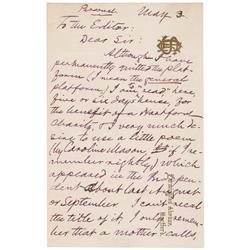 Personal. May 3.
To the Editor:
Dear Sir:
Although I have
permanently quitted the plat-
form (I mean the general
platform,) I am read- here,
five or six days hence, for
the benefit of a Hartford
charity, & I very much de-
sire to use a little poem
(by Caroline Mason, if I re-
member rightly,) which
appeared in the
pendent about last August
or September. I can't recal
the title of it. I only remem-
ber that a mother calls
Farmington Avenue,
Hartford.